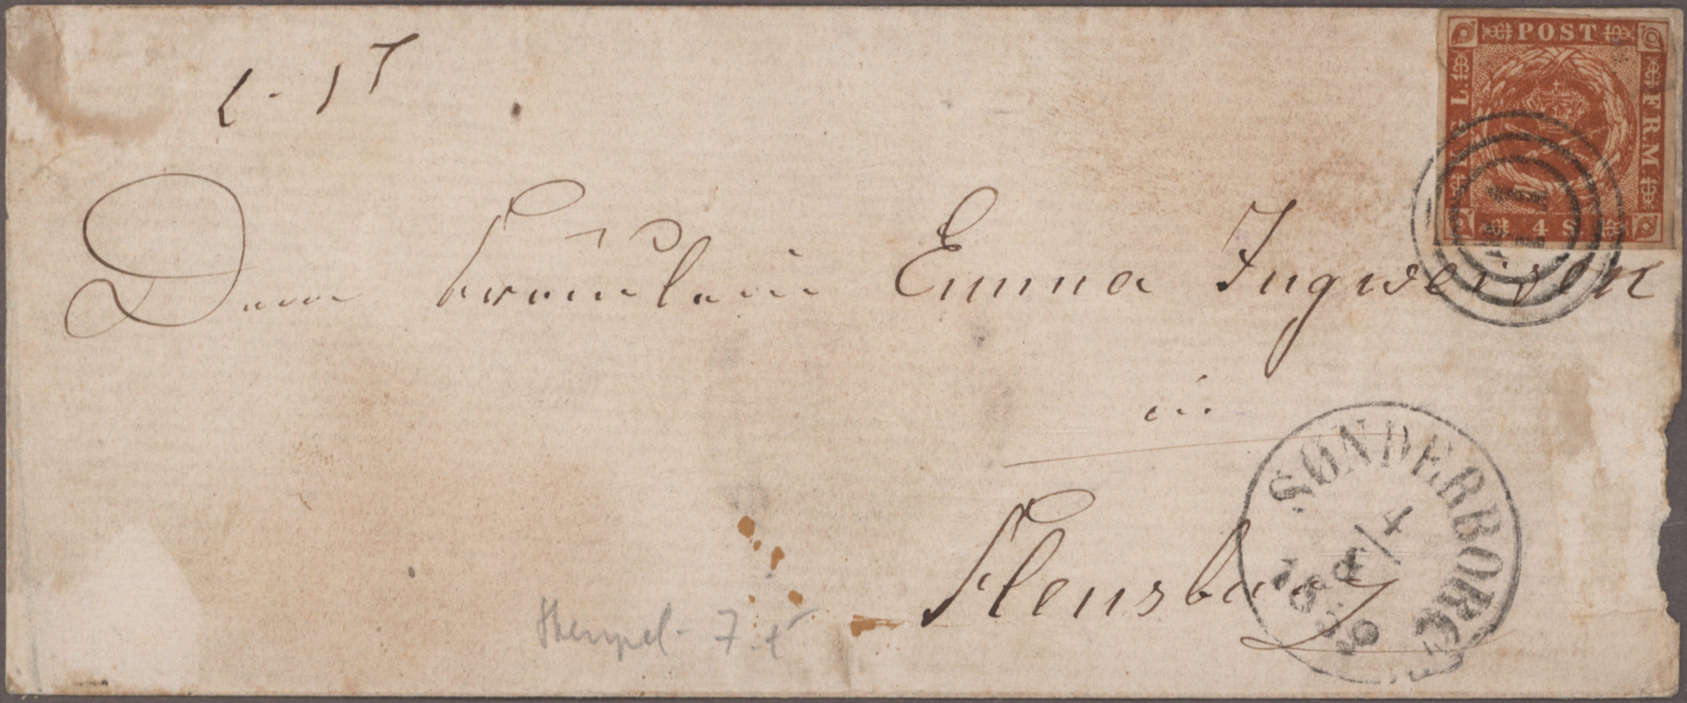 POST
KGL.
FRM.
4 S.
Dem Fräulein Emma Ingwersen
in
Flensburg
SØNDERBORG
Stempel